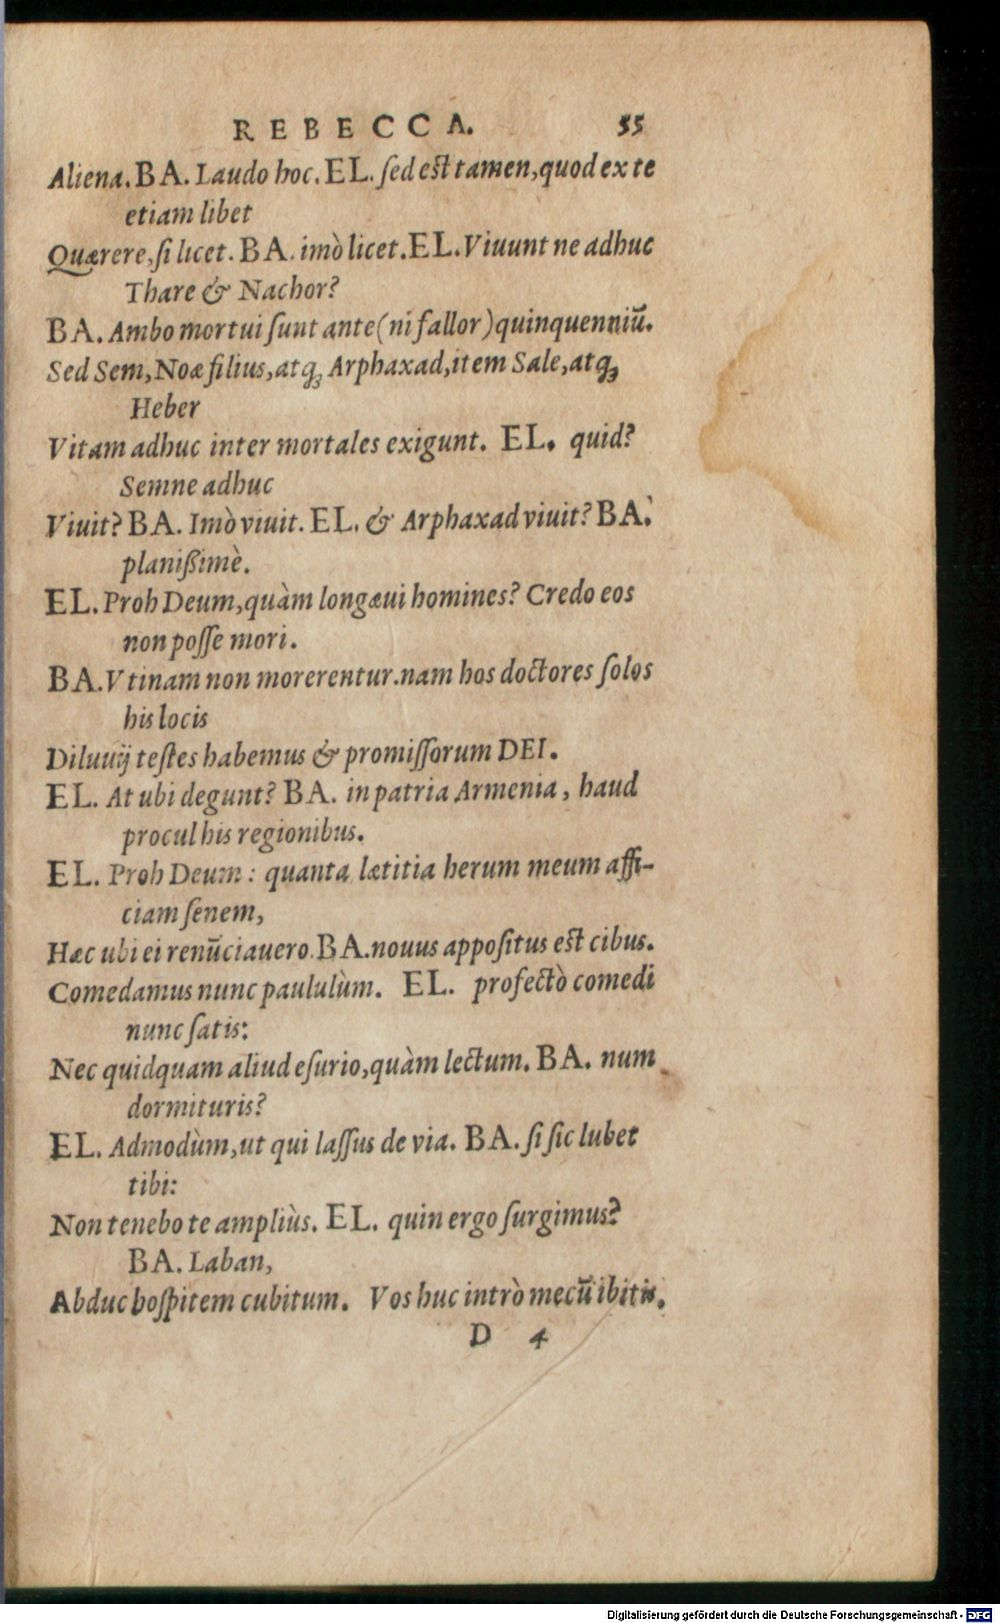 REBECCA. 55
Aliena. BA. Laudo hoc. EL. ſed eſt tamen, quod ex te
etiam libet
Quærere, ſi licet. BA. imò licet. EL. Viuunt ne adhuc
Thare & Nachor?
BA. Ambo mortui ſunt ante (ni fallor) quinquenniũ.
Sed Sem, Noæ filius, atꝗ́ Arphaxad, item Sale, atꝗ́
Heber
Vitam adhuc inter mortales exigunt. EL. quid?
Semne adhuc
Viuit? BA. Imò viuit. EL. & Arphaxad viuit? BA.
planißimè.
EL. Proh Deum, quàm longæui homines? Credo eos
non poſſe mori.
BA. Vtinam non morerentur. nam hos doctores ſolos
his locis
Diluuij teſtes habemus & promiſſorum DEI.
EL. At ubi degunt? BA. in patria Armenia, haud
procul his regionibus.
EL. Proh Deum: quanta lætitia herum meum affi-
ciam ſenem,
Hæc ubi ei renũciauero. BA. nouus appoſitus eſt cibus.
Comedamus nunc paululùm. EL. profectò comedi
nunc ſatis:
Nec quidquam aliud eſurio, quàm lectum. BA. num
dormituris?
EL. Admodùm, ut qui laſſus de via. BA. ſi ſic lubet
tibi:
Non tenebo te ampliùs. EL. quin ergo ſurgimus?
BA. Laban,
Abduc hoſpitem cubitum. Vos huc intrò mecũ ibitis.
D 4
Digitalisierung gefördert durch die Deutsche Forschungsgemeinschaft - DFG